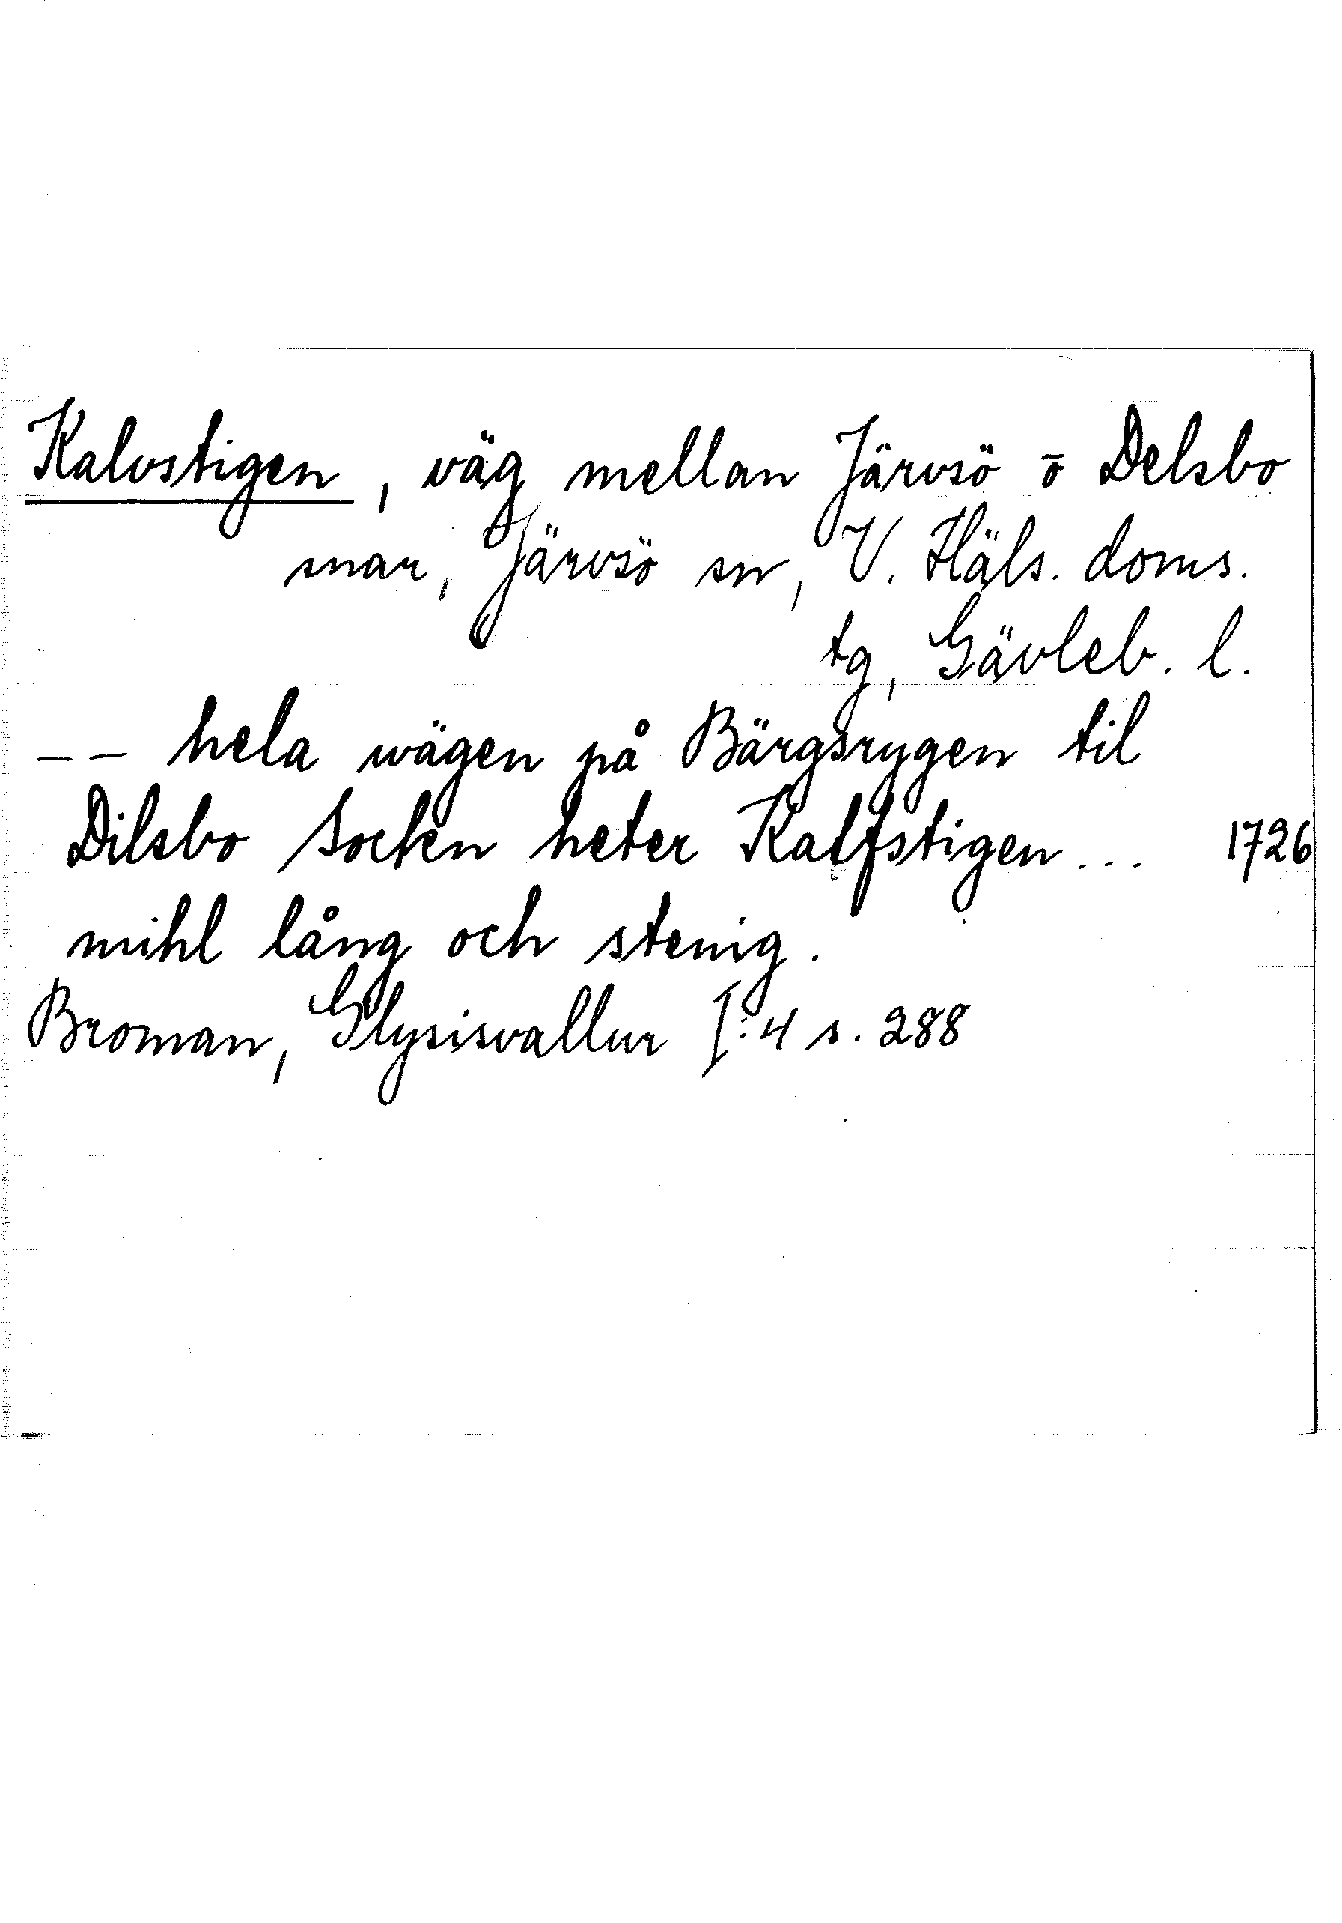 Kalvstigen, väg mellan Järvsö o Delsbo
snar, Järvsö sn, V. Häls. doms.
tg, Gävleb. l.
-- hela wägen på Bärgsrygen til
Dilsbo Socken heter Kalfstigen... 1726
mihl lång och stenig.
Broman, Glysisvallur I:4 s. 288